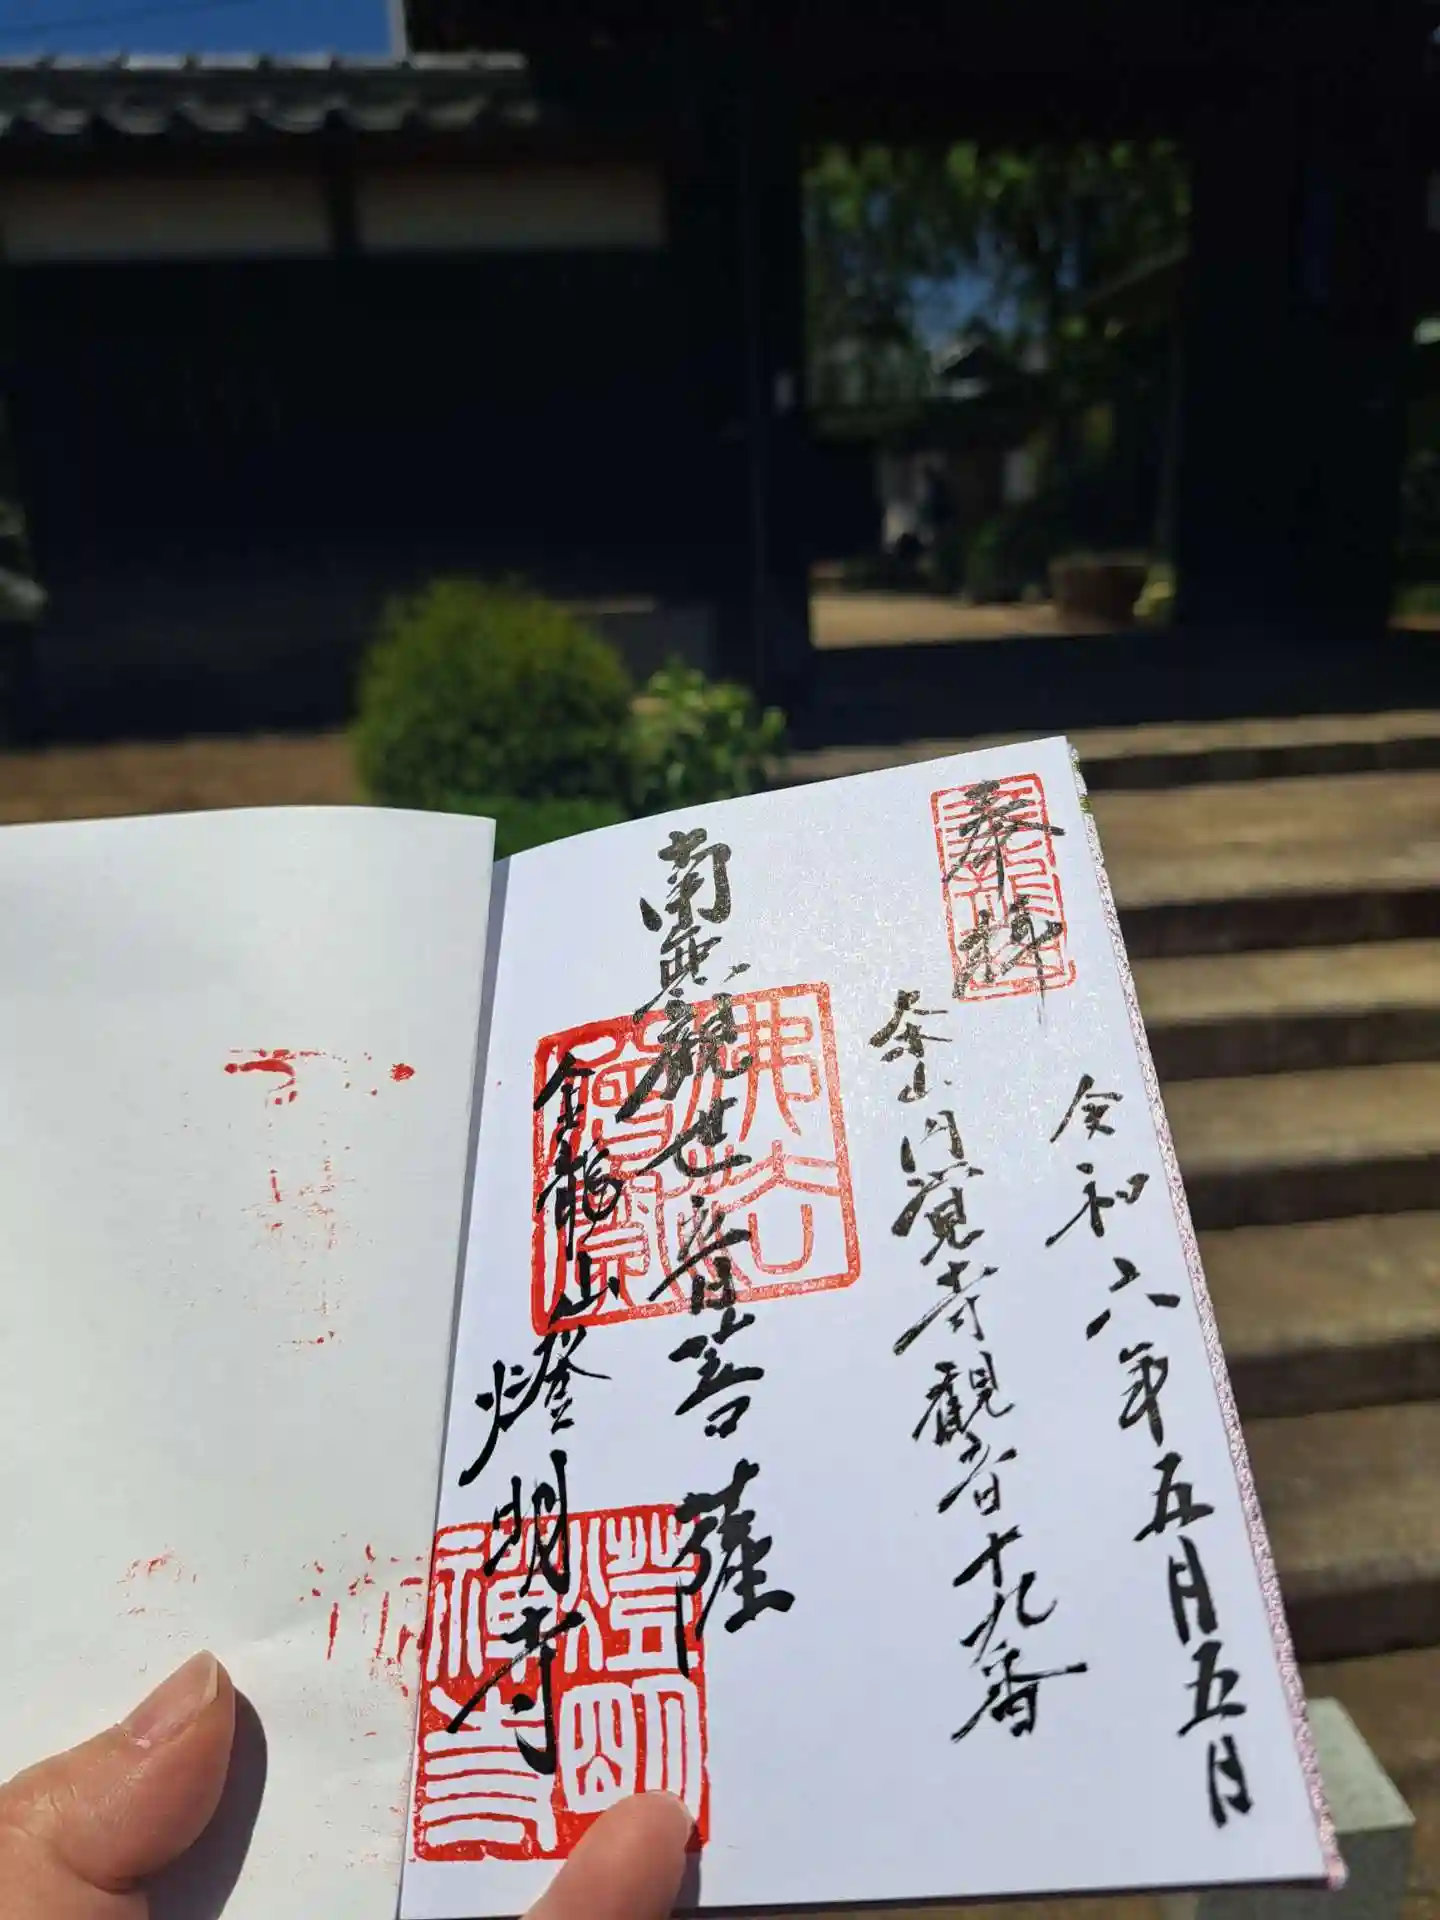 奉拝
令和六年五月五日
茶山円覚寺観音十九番
南無観世音菩薩
金龍山燈明寺
燈明禅寺